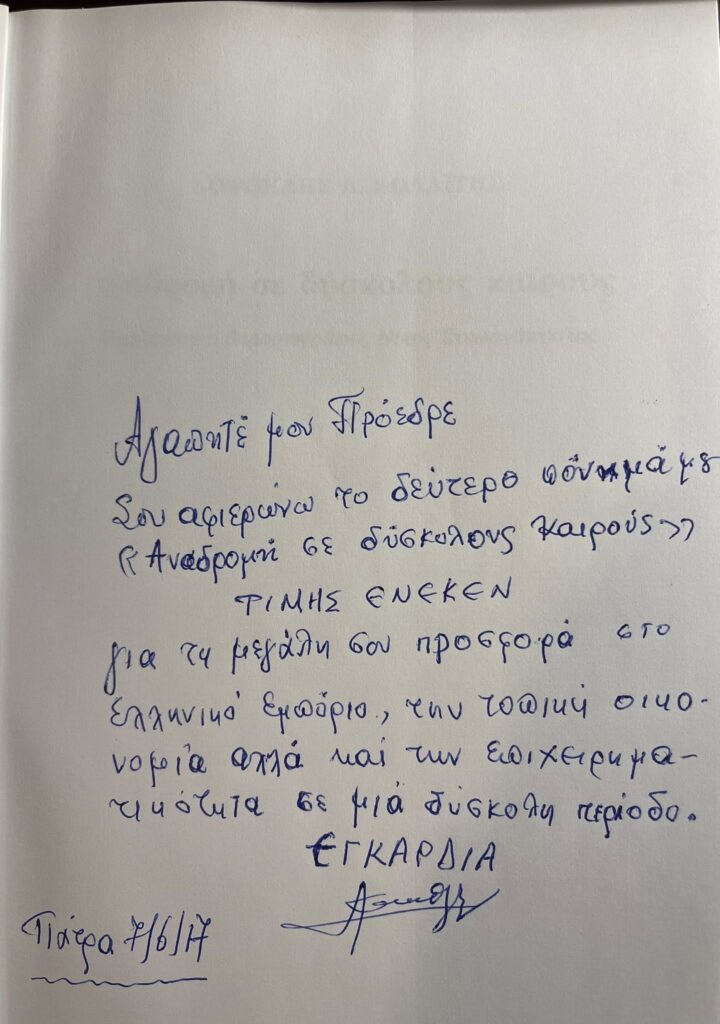 σε δύσκολους καιρούς
Αγαπητέ μου Πρόεδρε
Σου αφιερώνω το δεύτερο πόνημά με
<<Αναδρομή σε δύσκολους καιρούς>>
ΤΙΜΗΣ ΕΝΕΚΕΝ
για τη μεγάλη σου προσφορά στο
ελληνικό εμπόριο, την τοπική οικο-
νομία αλλά και την επιχειρημα-
τικότητα σε μιά δύσκολη περίοδο.
ΕΓΚΑΡΔΙΑ
Πάτρα 7/6/17